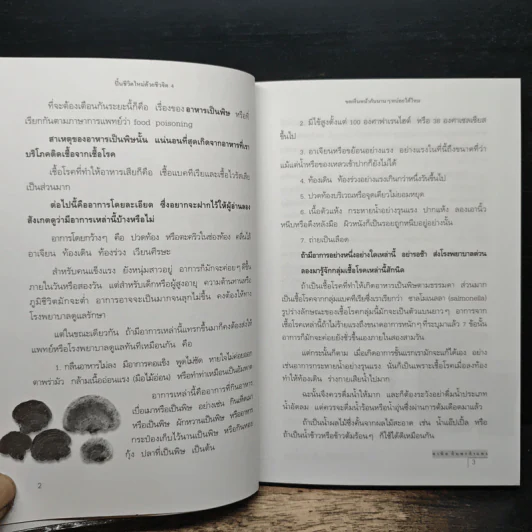 ปั้นชีวิตใหม่ด้วยชีวจิต 4
ที่จะต้องเตือนกันระยะนี้ก็คือ เรื่องของอาหารเป็นพิษ หรือที่
เรียกกันตามภาษาการแพทย์ว่า food poisoning
สาเหตุของอาหารเป็นพิษนั้น แน่นอนที่สุดเกิดจากอาหารที่เรา
บริโภคติดเชื้อจากเชื้อโรค
เชื้อโรคที่ทำให้อาหารเสียก็คือ เชื้อแบคทีเรียและเชื้อไวรัสเสีย
เป็นส่วนมาก
ต่อไปนี้คืออาการโดยละเอียด ซึ่งอยากจะฝากไว้ให้ผู้อ่านลอง
สังเกตดูว่ามีอาการเหล่านี้บ้างหรือไม่
อาการโดยกว้างๆ คือ ปวดท้อง หรือตะคริวในช่องท้อง คลื่นไส้
อาเจียน ท้องเดิน ท้องร่วง เวียนศีรษะ
สำหรับคนแข็งแรง ยังหนุ่มสาวอยู่ อาการก็มักจะค่อยๆ ดีขึ้น
ภายในวันหรือสองวัน แต่สำหรับเด็กหรือผู้สูงอายุ ความต้านทานหรือ
ภูมิชีวิตมักจะต่ำ อาการอาจจะเป็นมากจนลุกไม่ขึ้น คงต้องให้ทาง
โรงพยาบาลดูแลรักษา
แต่ในขณะเดียวกัน ถ้ามีอาการเหล่านี้แทรกขึ้นมาก็คงต้องส่งให้
แพทย์หรือโรงพยาบาลดูแลทันทีเหมือนกัน คือ
1. กลืนอาหารไม่ลง มีอาการคอแข็ง พูดไม่ชัด หายใจไม่ค่อยออก
ตาพร่ามัว กล้ามเนื้ออ่อนแรง (มือไม้อ่อน) หรือทำท่าเหมือนเป็นอัมพาต
อาการเหล่านี้คืออาการที่กินอาหาร
เบื่อเมาหรือเป็นพิษ อย่างเช่น กินเห็ดเมา
หรือเป็นพิษ ผักหวานเป็นพิษ หรืออาหาร
กระป๋องเก็บไว้นานเป็นพิษ หรือกินหอย
กุ้ง ปลาที่เป็นพิษ เป็นต้น
2
2. มีไข้สูงตั้งแต่ 100 องศาฟาเรนไฮต์ หรือ 38 องศาเซลเซียส
ขึ้นไป
3. อาเจียนหรือขย้อนอย่างแรง อย่างแรงในที่นี้ถึงขนาดที่ว่า
แม้แต่น้ำหรือของเหลวเข้าปากก็ยังไม่ได้
4. ท้องเดิน ท้องร่วงอย่างแรงเกินกว่าหนึ่งวันขึ้นไป
5. ปวดท้องบริเวณหรือจุดเดียวไม่ยอมหยุด
6. เนื้อตัวแห้ง กระหายน้ำอย่างรุนแรง ปากแห้ง ลองเอานิ้ว
หนีบหรือดึงหลังมือ ผิวหนังก็เป็นรอยถูกหนีบอยู่อย่างนั้น
7. ถ่ายเป็นเลือด
ถ้ามีอาการอย่างหนึ่งอย่างใดเหล่านี้ อย่ารอช้า ส่งโรงพยาบาลด่วน
ลองมารู้จักกลุ่มเชื้อโรคเหล่านี้สักนิด
ถ้าเป็นเชื้อโรคที่ทำให้เกิดอาหารเป็นพิษตามธรรมดา ส่วนมาก
เป็นเชื้อโรคจากกลุ่มแบคทีเรียซึ่งเราเรียกว่า ซาลโมเนลลา (salmonella)
รูปร่างลักษณะของเชื้อโรคกลุ่มนี้มักจะเป็นตัวแบนยาวๆ อาการจาก
เชื้อโรคเหล่านี้ถ้าไม่ร้ายแรงถึงขนาดอาการหนักๆ ที่ระบุมาแล้ว 7 ข้อนั้น
อาการก็มักจะค่อยยังชั่วขึ้นเองภายในสองสามวัน
แต่กระนั้นก็ตาม เมื่อเกิดอาการขึ้นแรกเรามักจะแก้ได้เอง อย่าง
เช่นอาการกระหายน้ำอย่างรุนแรง นั่นก็เป็นเพราะเชื้อโรคเมื่อลงท้อง
ทำให้ท้องเดิน ร่างกายเสียน้ำไปมาก
ฉะนั้นจึงควรดื่มน้ำให้มาก และก็ต้องระวังอย่าดื่มน้ำประเภท
น้ำอัดลม แต่ควรจะดื่มน้ำร้อนหรือน้ำอุ่นซึ่งผ่านการต้มเดือดมาแล้ว
ถ้าเป็นน้ำผลไม้ซึ่งคั้นจากผลไม้สะอาด เช่น น้ำแอ๊ปเปิ้ล หรือ
ถ้าเป็นน้ำข้าวหรือข้าวต้มร้อนๆ ก็ใช้ได้ดีเหมือนกัน
3